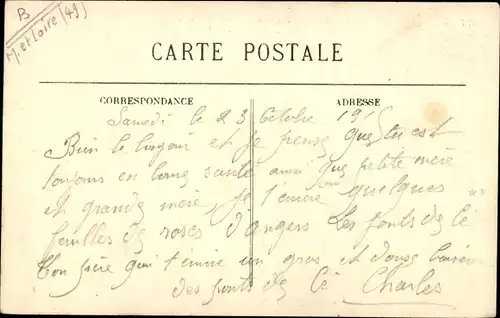 B
M. et Loire (49)
CARTE POSTALE
CORRESPONDANCE
ADRESSE
Samedi le 23 Octobre 191
Bien le bonjour et je pense que tu est
toujours en bonne santé ainsi que petite mère
et grande mère, je t'envoie quelques
feuilles de roses d'Angers Les ponts de Cé
Ton frère qui t'envoie un gros et doux baiser
des ponts de Cé Charles